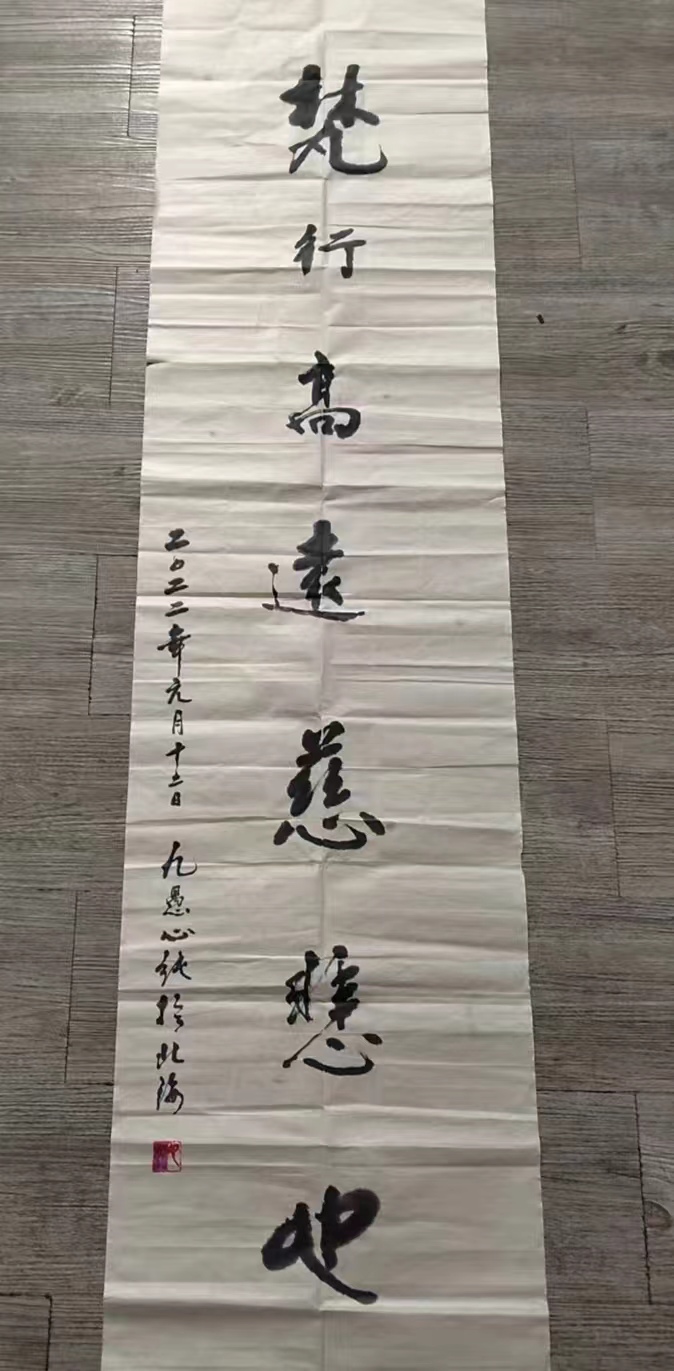 梵行高遠慈慧也
二〇二二年元月十二日 凡愚心純於北海